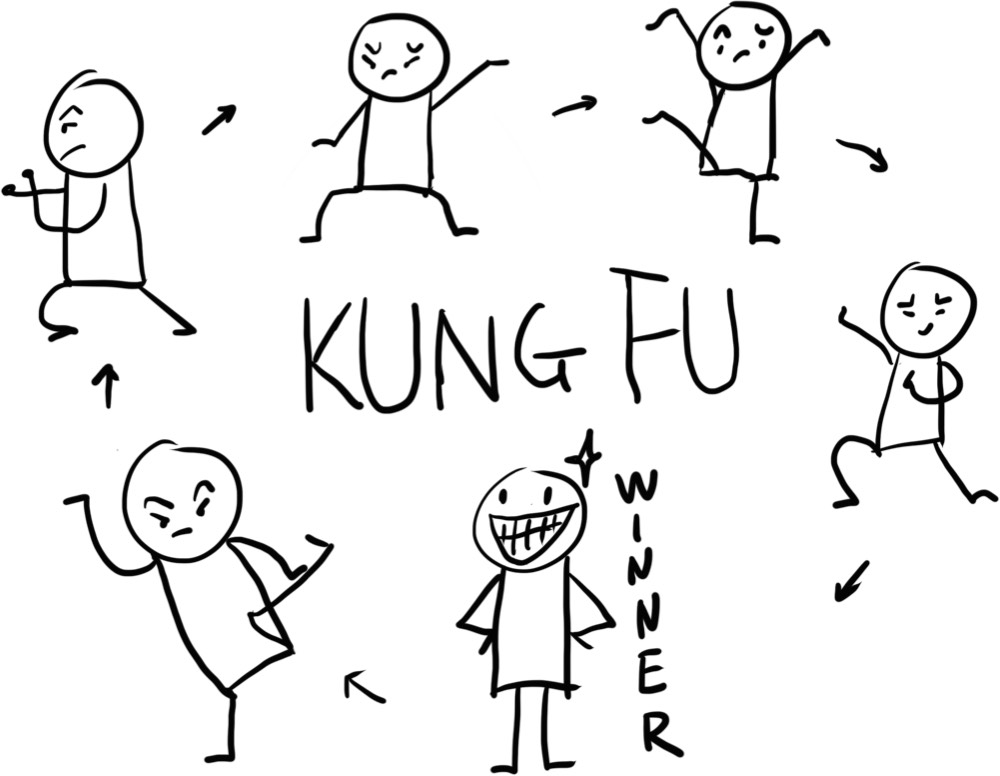 KUNG FU
WINNER